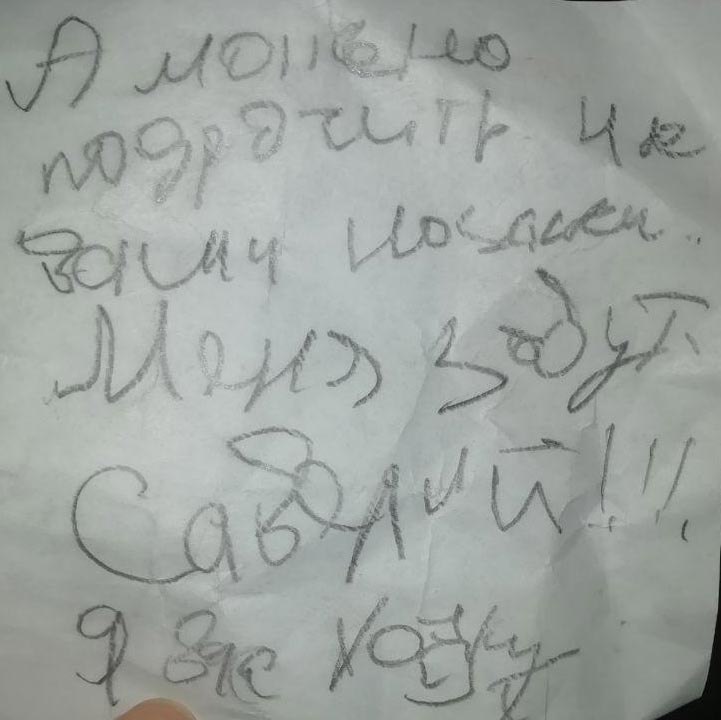 А можно
подрочить на
ваши
Меня зовут
Савелий!!!
Я вас хочу